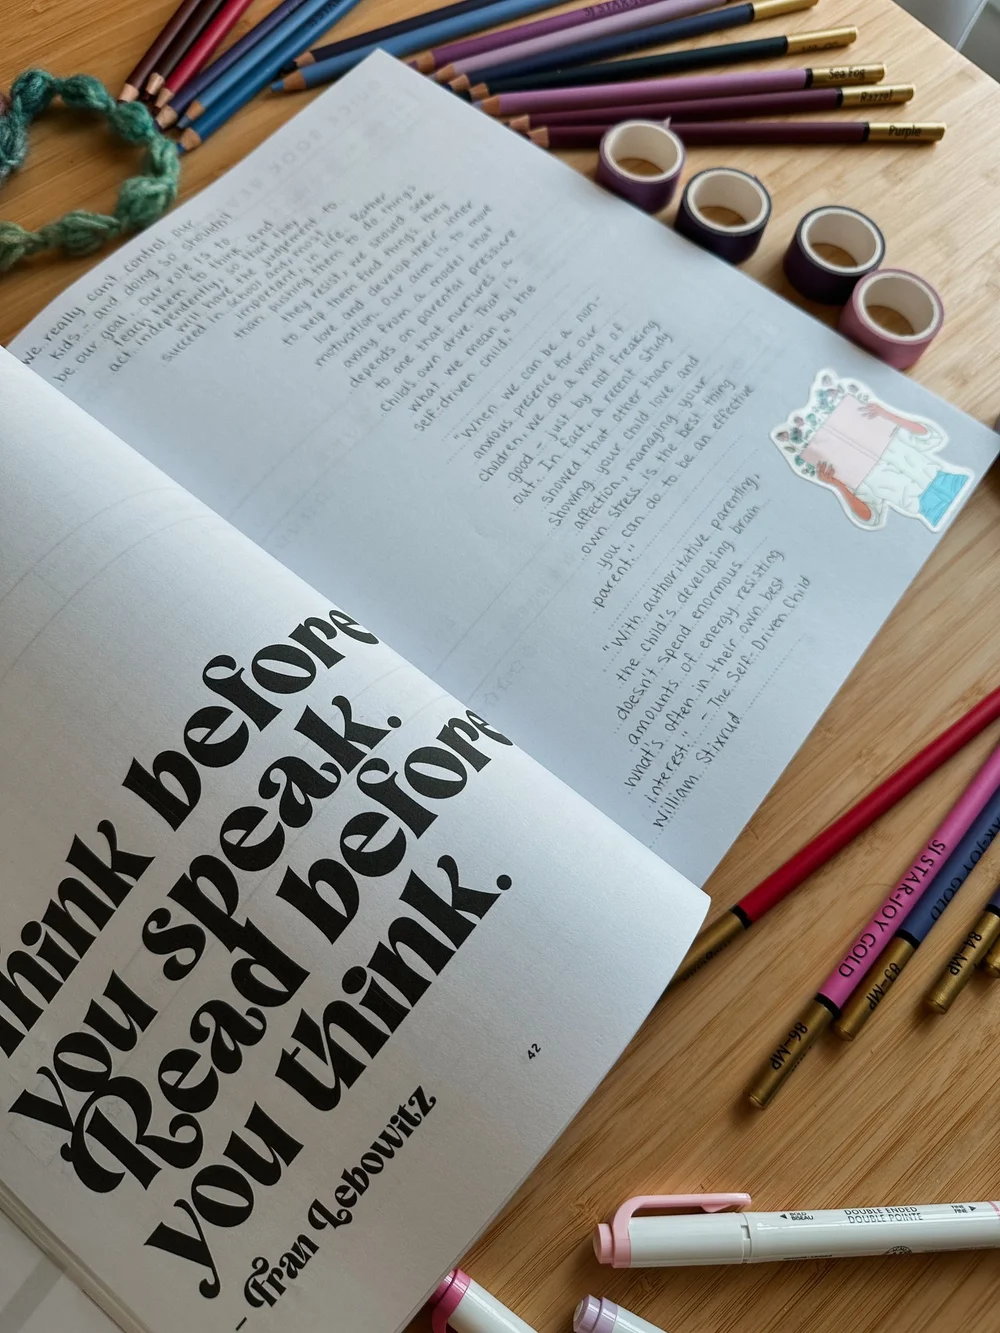 we really can't control our
kids - and doing so shouldn't
be our goal. Our role is to
teach them to think and
act independently, so that they
will have the judgement to
succeed in school and, most
important, in life. Rather
than pushing them to do things
they resist, we should seek
to help them find things they
love and develop their inner
motivation. Our aim is to move
away from a model that
depends on parental pressure
to one that nurtures a
child's own drive. That is
what we mean by the
self-driven child."
"When we can be a non-
anxious presence for our
children, we do a world of
good - just by not freaking
out. In fact, a recent study
showed that other than
showing your child love and
affection, managing your
own stress is the best thing
you can do to be an effective
parent."
"With authoritative parenting,
the child's developing brain
doesn't spend enormous
amounts of energy resisting
what's often in their own best
interest." - The Self-Driven Child
William Stixrud
Think before
you speak.
Read before
you think.
- Fran Lebowitz
42
Sea Fog
Purple
SISTAR-JOY GOLD
86-MP
83-MP
84-MP
BOLD
BISEAU
DOUBLE ENDED
DOUBLE POINTE
FINE